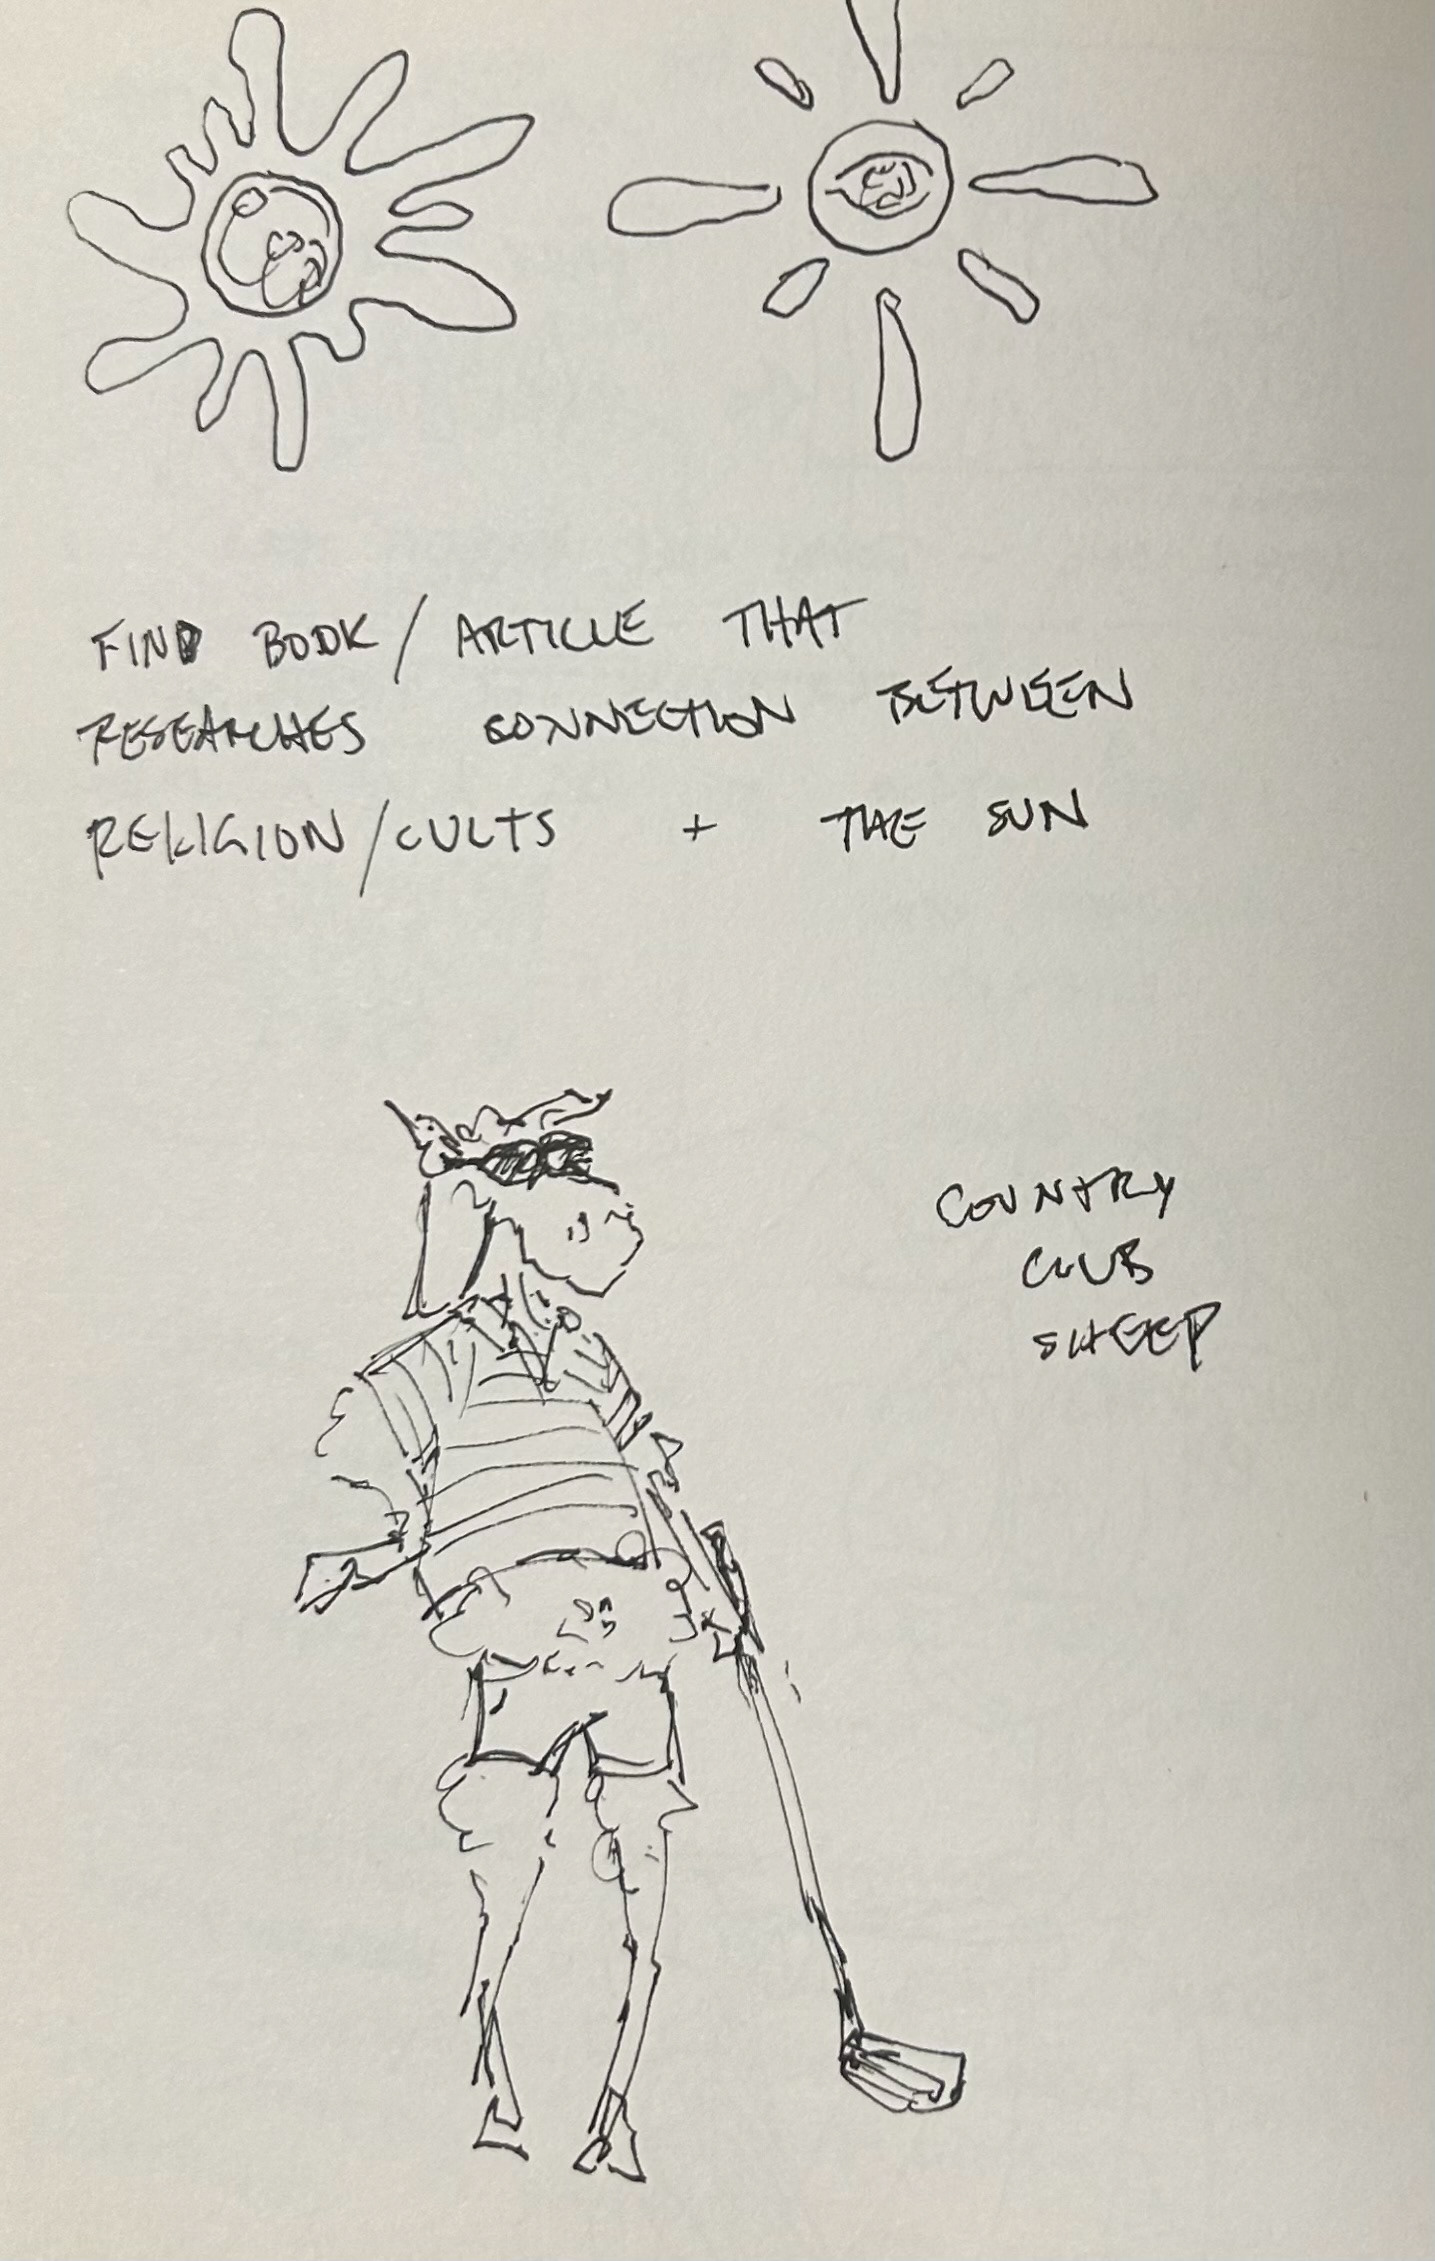 FIND BOOK/ARTICLE THAT
RESEARCHES CONNECTION BETWEEN
RELIGION/CULTS + THE SUN
COUNTRY
CLUB
SHEEP